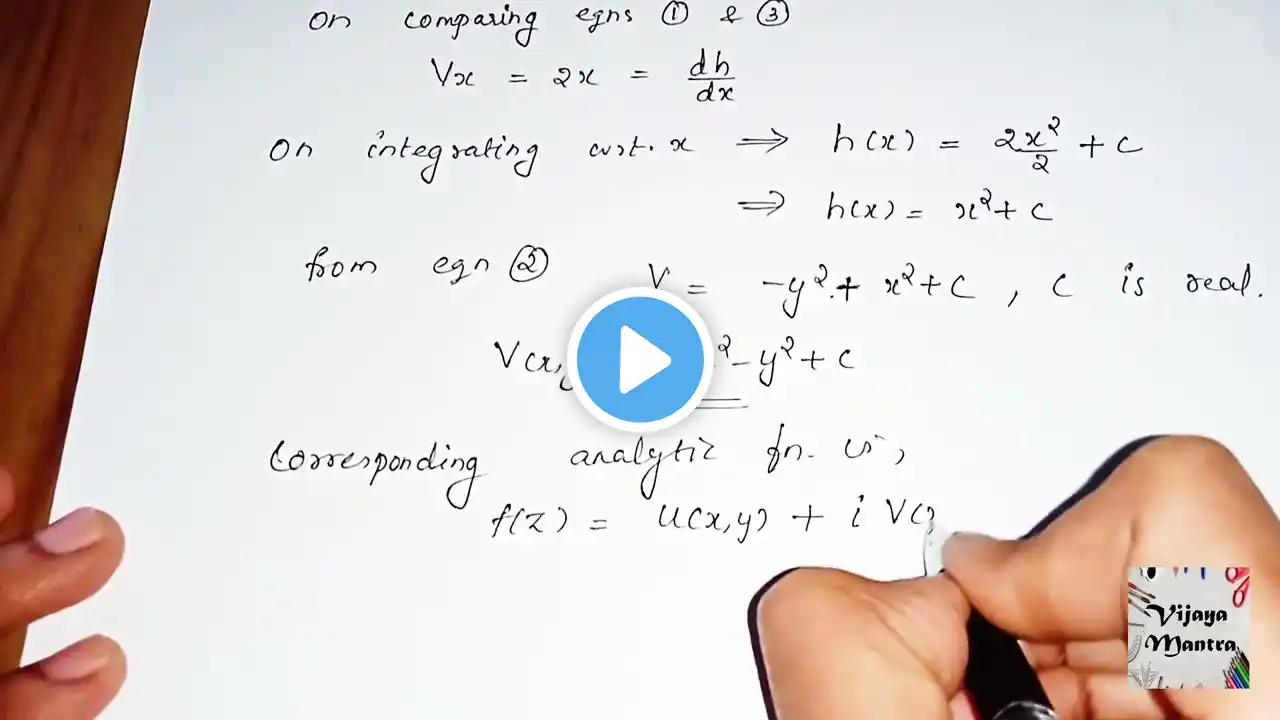 On comparing eqns ① & ③
Vx = 2x = dh/dx
On integrating w.r.t. x ⇒ h(x) = 2x²/2 + c
⇒ h(x) = x² + c
from eqn ② V = -y² + x² + c , c is real.
V(x, ² - y² + c
Corresponding analytic fn. is,
f(z) = u(x,y) + i V(
Vijaya
Mantra